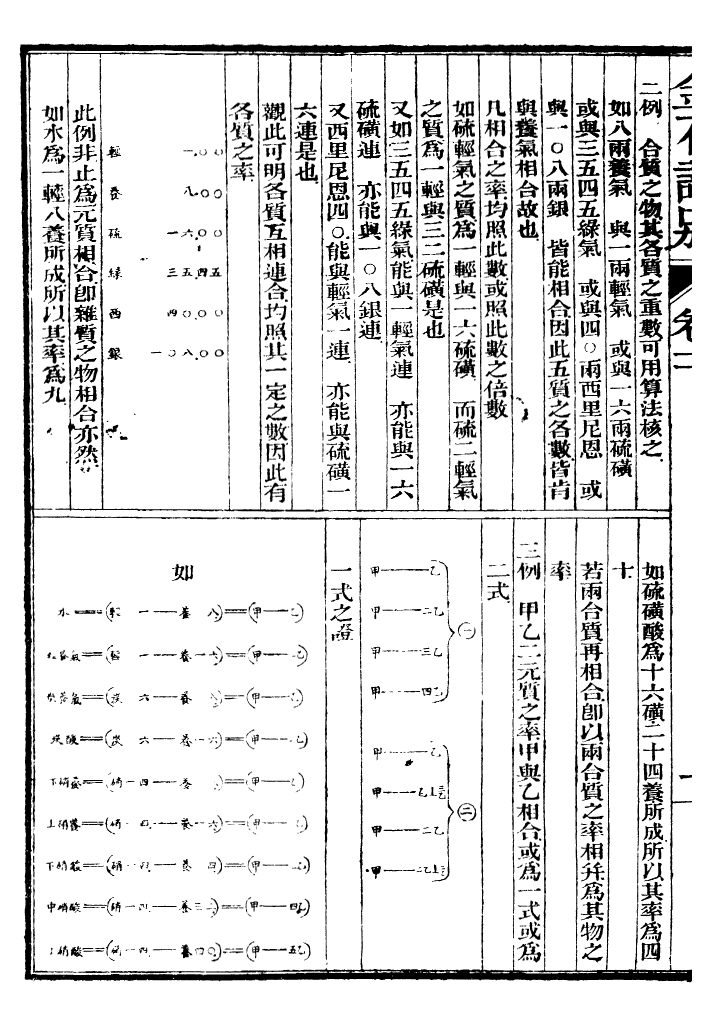 二例　合質之物其各質之重數可用算法核之
如八兩養氣　與一兩輕氣　或與一六兩硫磺
或與三五四五綠氣　或與四〇兩西里尼恩　或
與一〇八兩銀　皆能相合因此五質之各數皆肯
與養氣相合故也
凡相合之率均照此數或照此數之倍數
如硫輕氣之質爲一輕與一六硫磺　而硫二輕氣
之質爲一輕與三二硫磺是也
又如三五四五綠氣能與一輕氣連　亦能與一六
硫磺連　亦能與一〇八銀連
又西里尼恩四〇能與輕氣一連　亦能與硫磺一
六連是也
觀此可明各質互相連合均照其一定之數因此有
各質之率
輕　一.〇〇
養　八.〇〇
硫　一六.〇〇
綠　三五.四五
西　四〇.〇〇
銀　一〇八.〇〇
此例非止爲元質相合卽雜質之物相合亦然
如水爲一輕八養所成所以其率爲九
如硫磺酸爲十六磺二十四養所成所以其率爲四
十
若兩合質再相合卽以兩合質之率相幷爲其物之
率
三例　甲乙二元質之率甲與乙相合或爲一式或爲
二式
甲——乙
甲——二乙
甲——三乙
甲——四乙
㊀
甲——乙
甲——二乙
㊁
一式之證
如
水＝(輕　一——養　八)＝(甲——乙)
養氣＝(輕　一——養一六)＝(甲——二乙)
炭養氣＝(炭　六——養　八)＝(甲——乙)
炭酸＝(炭　六——養一六)＝(甲——二乙)
下硝養＝(硝一四——養　八)＝(甲——乙)
上硝養＝(硝一四——養一六)＝(甲——二乙)
下硝酸＝(硝一四——養二四)＝(甲——三乙)
中硝酸＝(硝一四——養三二)＝(甲——四乙)
上硝酸＝(硝一四——養四〇)＝(甲——五乙)
卷二